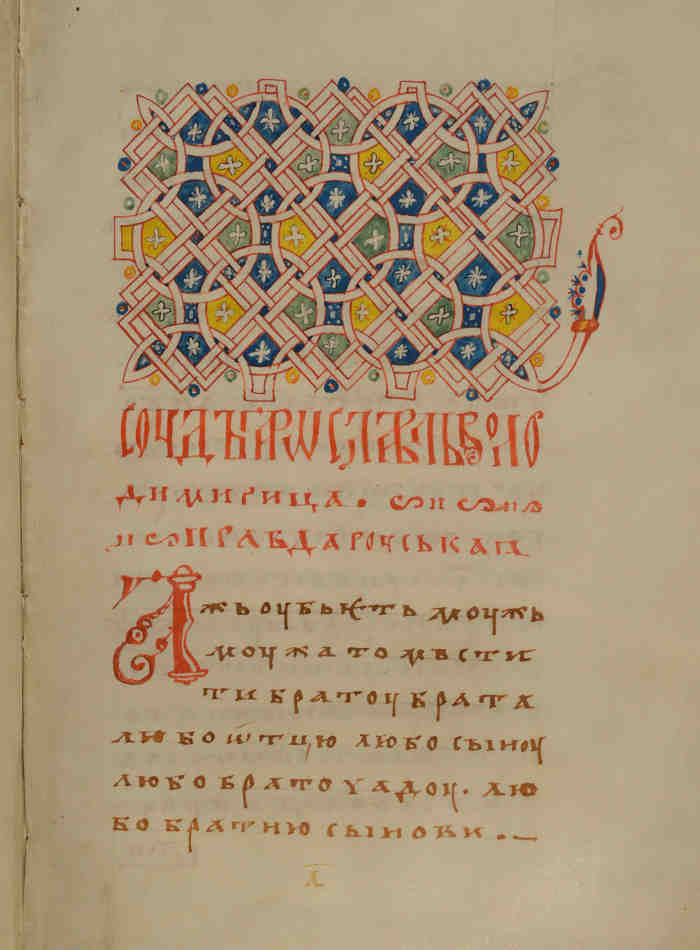 СОУДЪ ꙖРѠСЛАВЛЬ ВОЛО
ДИМИРИЦА.
ПРАВДА РОУСЬКАꙖ
Ажь оубьѥть моужь
моужа то мьсти
ти братоу брата
любо ѿтцю любо сыноу
любо браточадоу. лю
бо братню сынови.